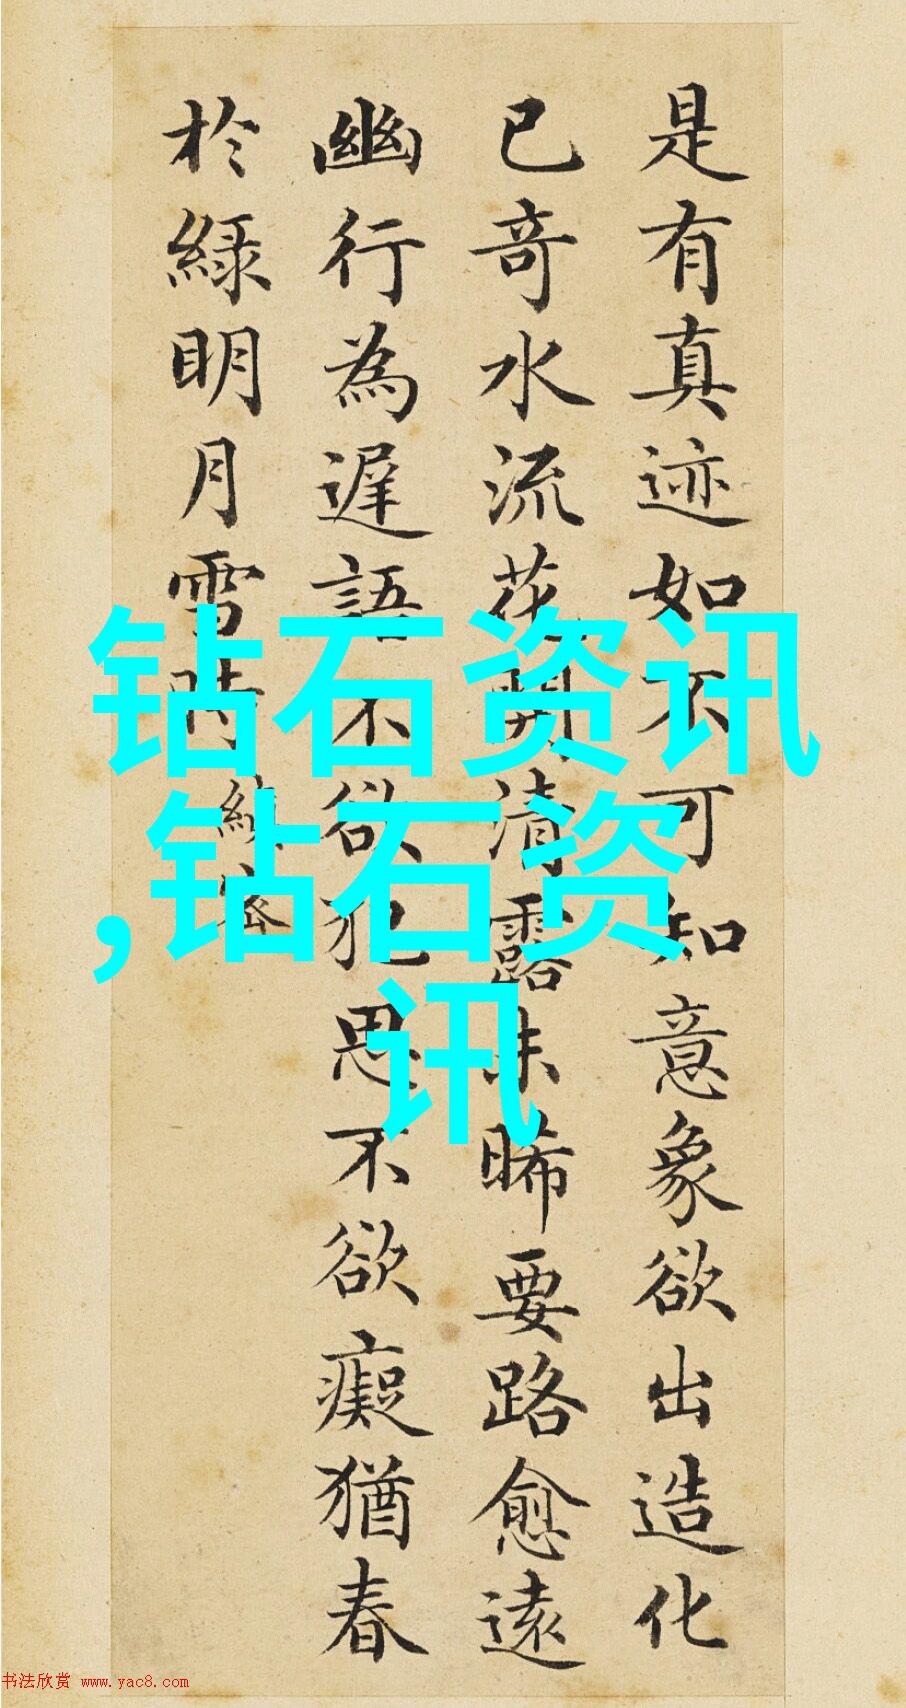 是有真迹如不可知意象欲出造化
已奇水流花開清露未晞要路愈遠
幽行為遲語不欲犯思不欲癡猶春
於綠明月雪時 縝密
钻石资讯
,钻石资
讯
书法欣赏 www.yac8.com